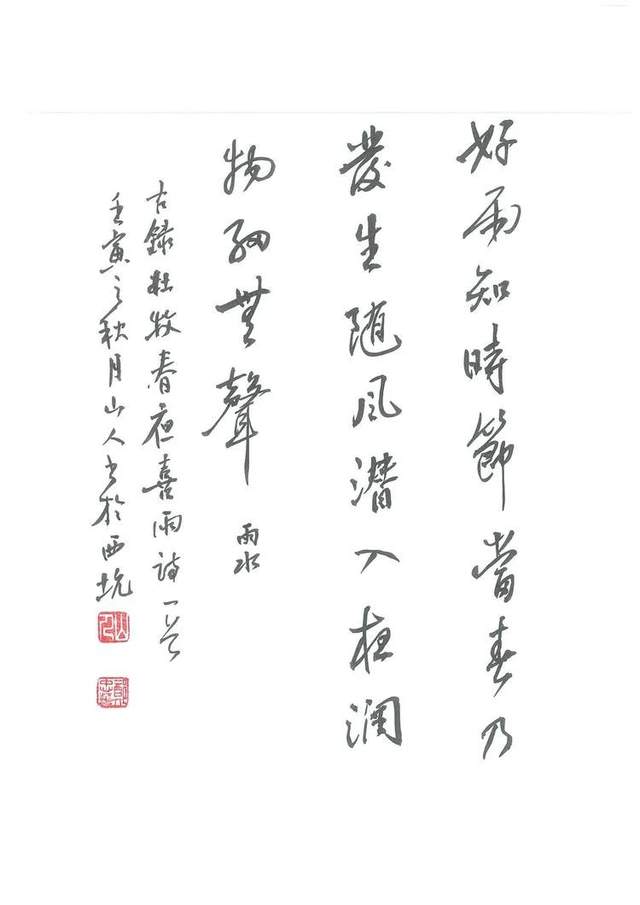 好雨知時節當春乃
發生随风潛入夜潤
物細無聲 雨水
古錄杜牧春夜喜雨詩一首
壬寅之秋月山人书於西坑
山人